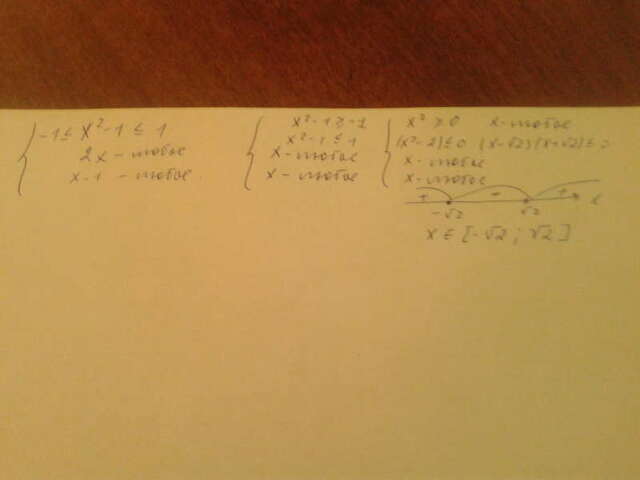 -1 ≤ x²-1 ≤ 1
2x - любое
x-1 - любое.
x²-1 ≥ -1
x²-1 ≤ 1
x - любое
x - любое
x² ≥ 0 x - любое
(x²-2) ≤ 0 (x-√2)(x+√2) ≤ 0
x - любое
x - любое
+ - + x
-√2 √2
x ∈ [-√2; √2]